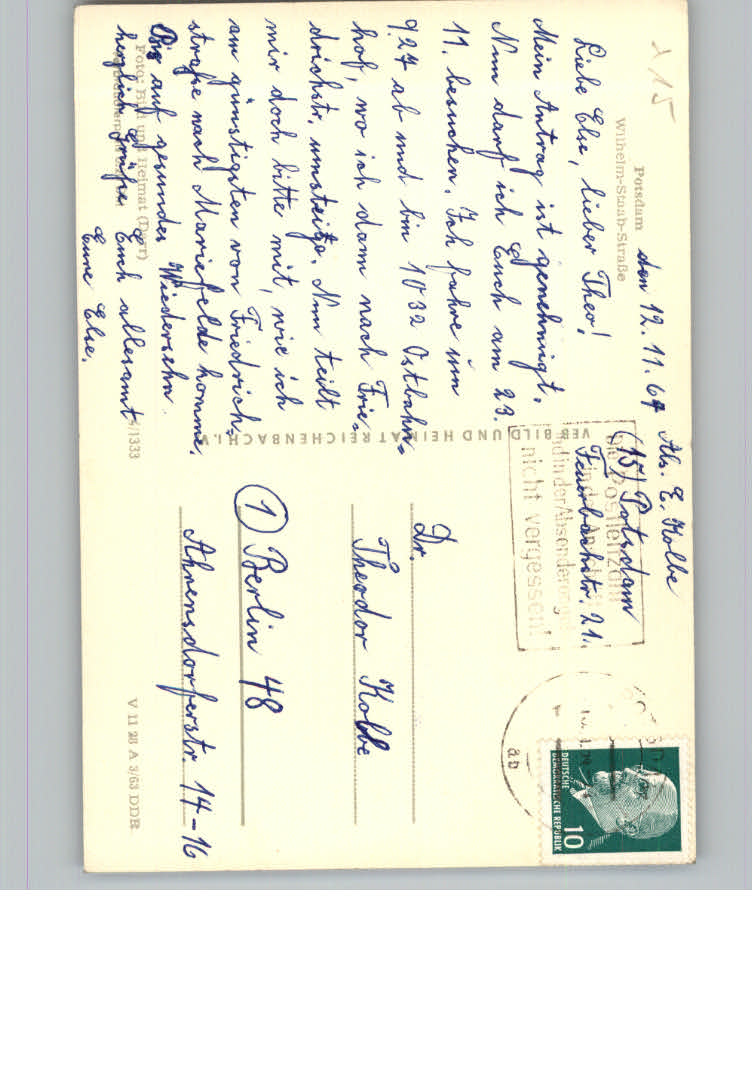 Potsdam
Wilhelm-Staab-Straße
den 12. 11. 64
Liebe Else, lieber Theo!
Mein Antrag ist genehmigt.
Nun darf ich Euch am 23.
11. besuchen. Ich fahre um
9.27 ab und bin 10 32 Ostbahn-
hof, wo ich dann nach Frie-
drichstr. umsteige. Nun teilt
mir doch bitte mit, wie ich
am günstigten von Friedrich-
straße nach Mariefelde komme.
Bis auf gesundes Wiedersehn
herzliche Grüße Euch allesamt
Eure Else.
Foto: Bild und Heimat (Darr)
/1333
VEB BILD UND HEIMAT REICHENBACH I. V.
Abs. E. Kolbe
(15) Potsdam
Feuerbachstr. 21.
Postleitzahl
in der Absenderangabe
nicht vergessen!
DEUTSCHE
DEMOKRATISCHE REPUBLIK
10
Dr.
Theodor Kolbe
(1) Berlin 48
Ahrensdorferstr. 14-16
V 11 28 A 3/63 DDR